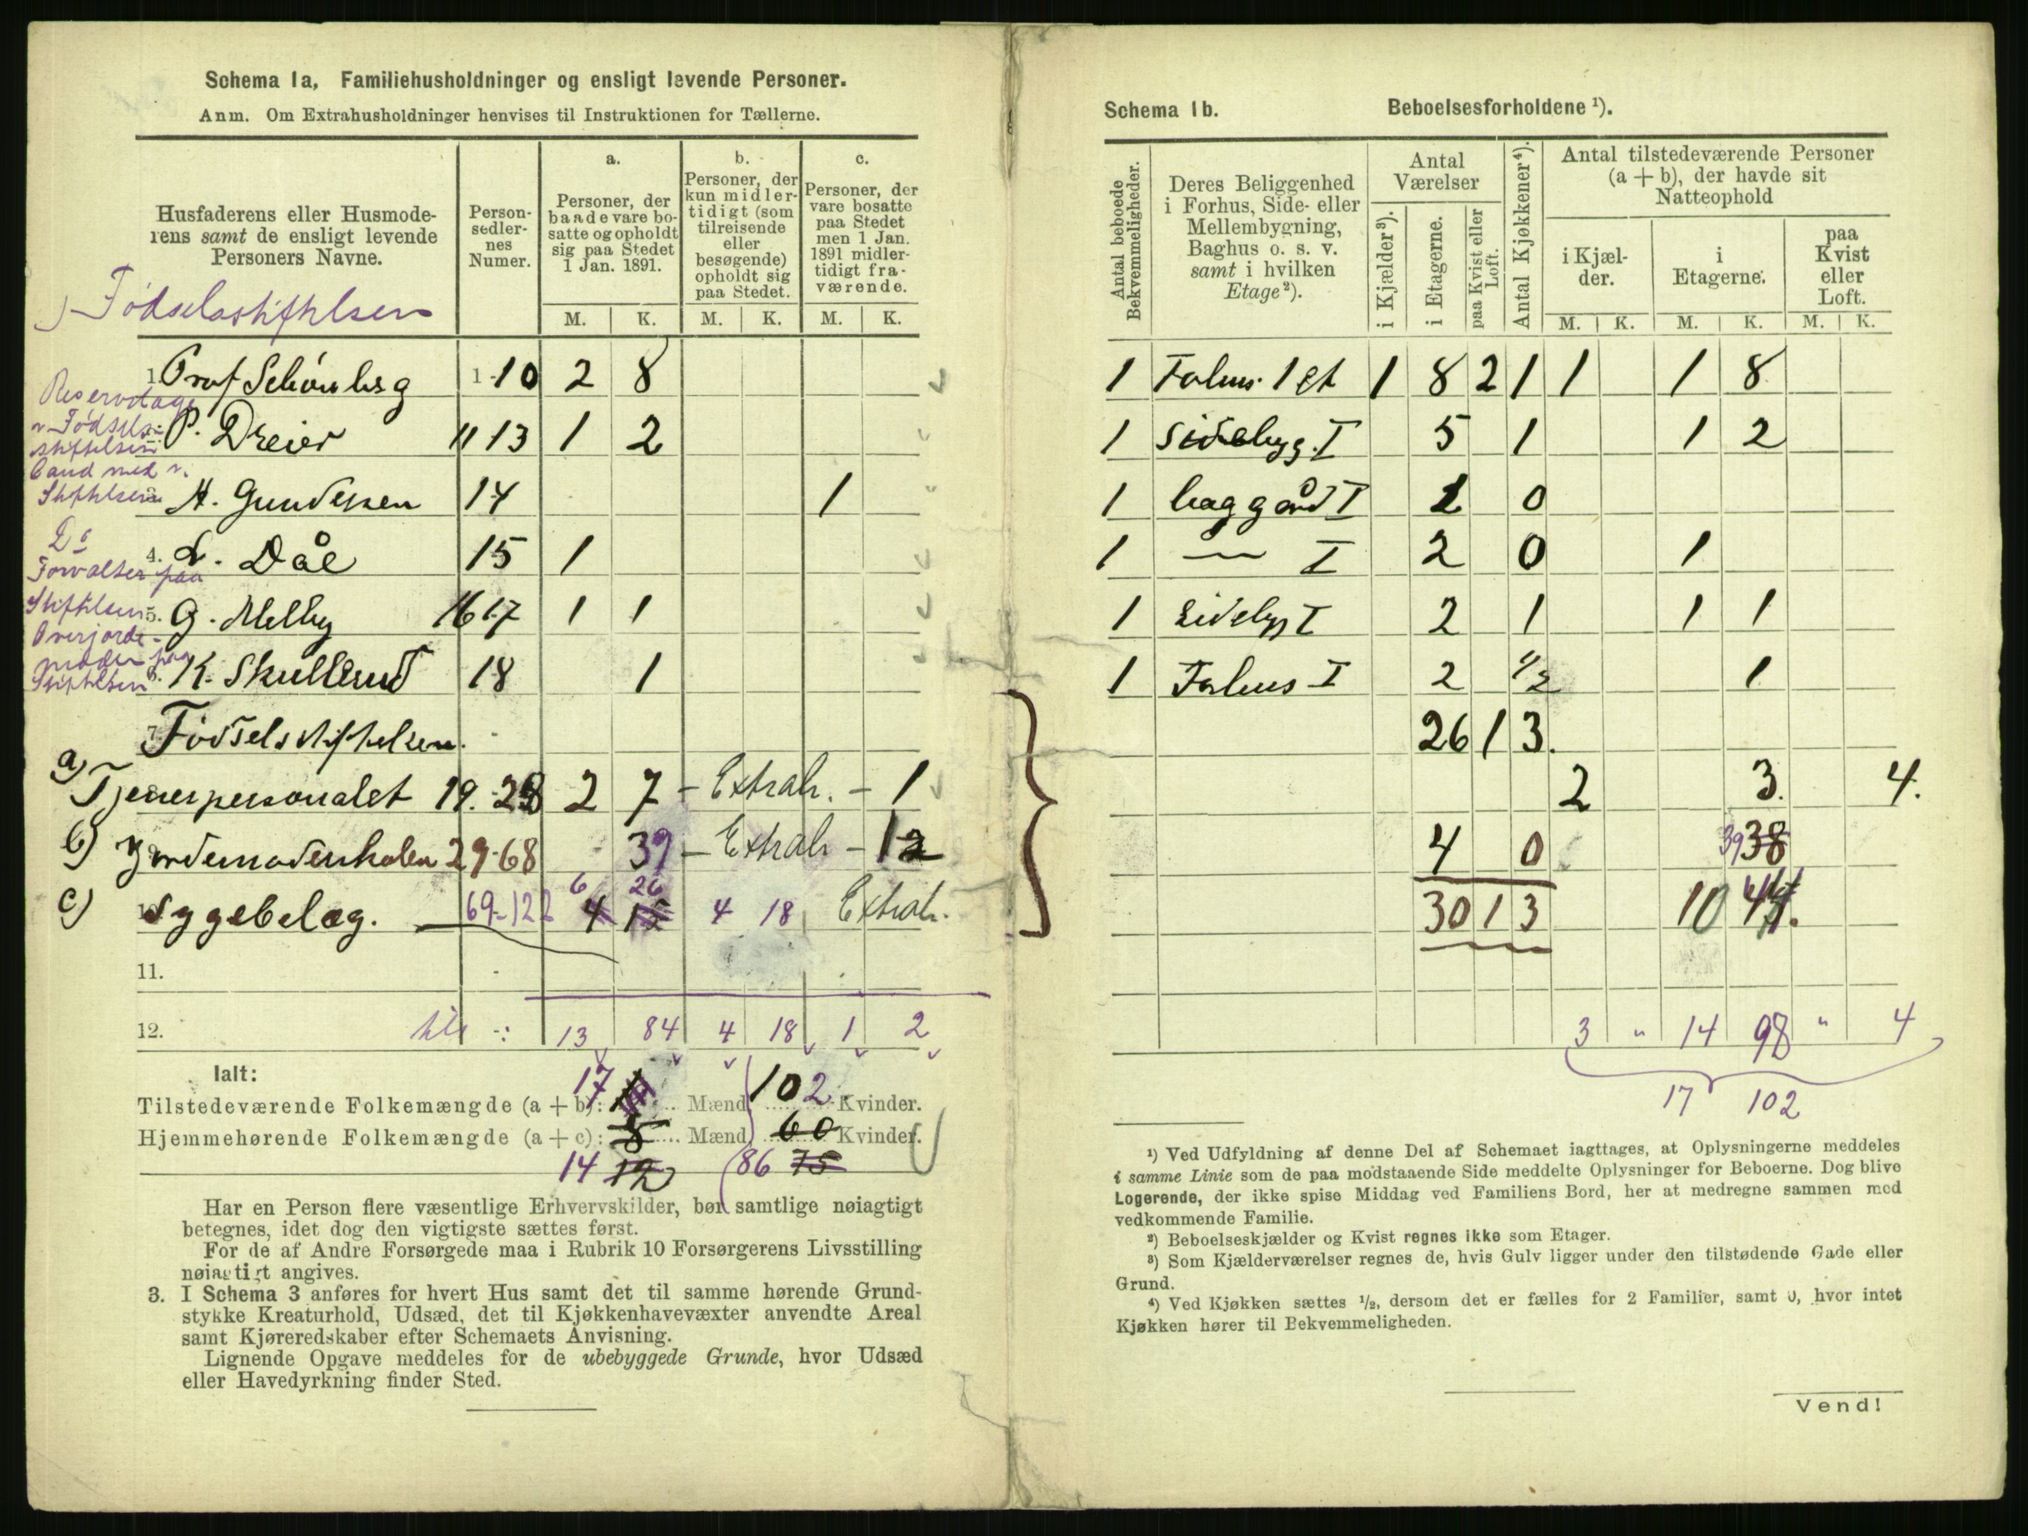 Schema 1a, Familiehusholdninger og ensligt levende Personer.
Anm. Om Extrahusholdninger henvises til Instruktionen for Tællerne.
Husfaderens eller Husmode-
rens samt de ensligt levende
Personers Navne.
Person-
sedler-
nes
Numer.
a.
Personer, der
baade vare bo-
satte og opholdt
sig paa Stedet
1 Jan. 1891.
b.
Personer, der
kun midler-
tidigt (som
tilreisende
eller
besøgende)
opholdt sig
paa Stedet.
c.
Personer, der
vare bosatte
paa Stedet
men 1 Jan.
1891 midler-
tidigt fra-
værende.
M. K. M. K. M. K.
Fødselsstiftelsen
1. Prof Schönberg 1-10 2 8
Reservelæge
v. Fødsels-
stiftelsen
P. Dreier 11 13 1 2
Cand med v.
Stiftelsen
H. Gundersen 14 1
Do
4. L. Dåe 15 1
Forvalter paa
Stiftelsen
5. G. Melby 16 17 1 1
Overjorde-
moder paa
Stiftelsen
6. K. Skullerud 18 1
7. Fødselsstiftelsen.
a) Tjenerpersonalet 19.-28 2 7 - Extrah. - 1
b) Jordemoderskolen 29-68 39 - Extrah - 12
6 26
c) Sygebelæg. 69-122 4 15 4 18 Extrah.
11.
12. 13 84 4 18 1 2
Ialt:
Tilstedeværende Folkemængde (a + b): 17 Mænd 102 Kvinder.
Hjemmehørende Folkemængde (a + c): 8 Mænd 60 Kvinder.
14 12 86 75
Har en Person flere væsentlige Erhvervskilder, bør samtlige nøiagtigt
betegnes, idet dog den vigtigste sættes først.
For de af Andre Forsørgede maa i Rubrik 10 Forsørgerens Livsstilling
nøiagtigt angives.
3. I Schema 3 anføres for hvert Hus samt det til samme hørende Grund-
stykke Kreaturhold, Udsæd, det til Kjøkkenhavevæxter anvendte Areal
samt Kjøreredskaber efter Schemaets Anvisning.
Lignende Opgave meddeles for de ubebyggede Grunde, hvor Udsæd
eller Havedyrkning finder Sted.
Schema 1b. Beboelsesforholdene ¹).
Antal beboede
Bekvemmeligheder.
Deres Beliggenhed
i Forhus, Side- eller
Mellembygning,
Baghus o. s. v.
samt i hvilken
Etage²).
Antal
Værelser
i Kjælder³).
i Etagerne.
paa Kvist eller
Loft.
Antal Kjøkkener⁴).
Antal tilstedeværende Personer
(a + b), der havde sit
Natteophold
i Kjæl-
der.
i
Etagerne.
paa
Kvist
eller
Loft.
M. K. M. K. M. K.
1 Forhus. 1 et 1 8 2 1 1 1 8
1 Sidebygg. I 5 1 1 2
1 baggård I 1 0
1 — I 2 0 1
1 Sidebyg I 2 1 1 1
1 Forhus I 2 1/2 1
26 1 3.
2 3. 4.
4 0 39 38
30 1 3 10
3 " 14 98 " 4
17 102
¹) Ved Udfyldning af denne Del af Schemaet iagttages, at Oplysningerne meddeles
i samme Linie som de paa modstaaende Side meddelte Oplysninger for Beboerne. Dog blive
Logerende, der ikke spise Middag ved Familiens Bord, her at medregne sammen med
vedkommende Familie.
²) Beboelseskjælder og Kvist regnes ikke som Etager.
³) Som Kjælderværelser regnes de, hvis Gulv ligger under den tilstødende Gade eller
Grund.
⁴) Ved Kjøkken sættes ½, dersom det er fælles for 2 Familier, samt 0, hvor intet
Kjøkken hører til Bekvemmeligheden.
Vend!